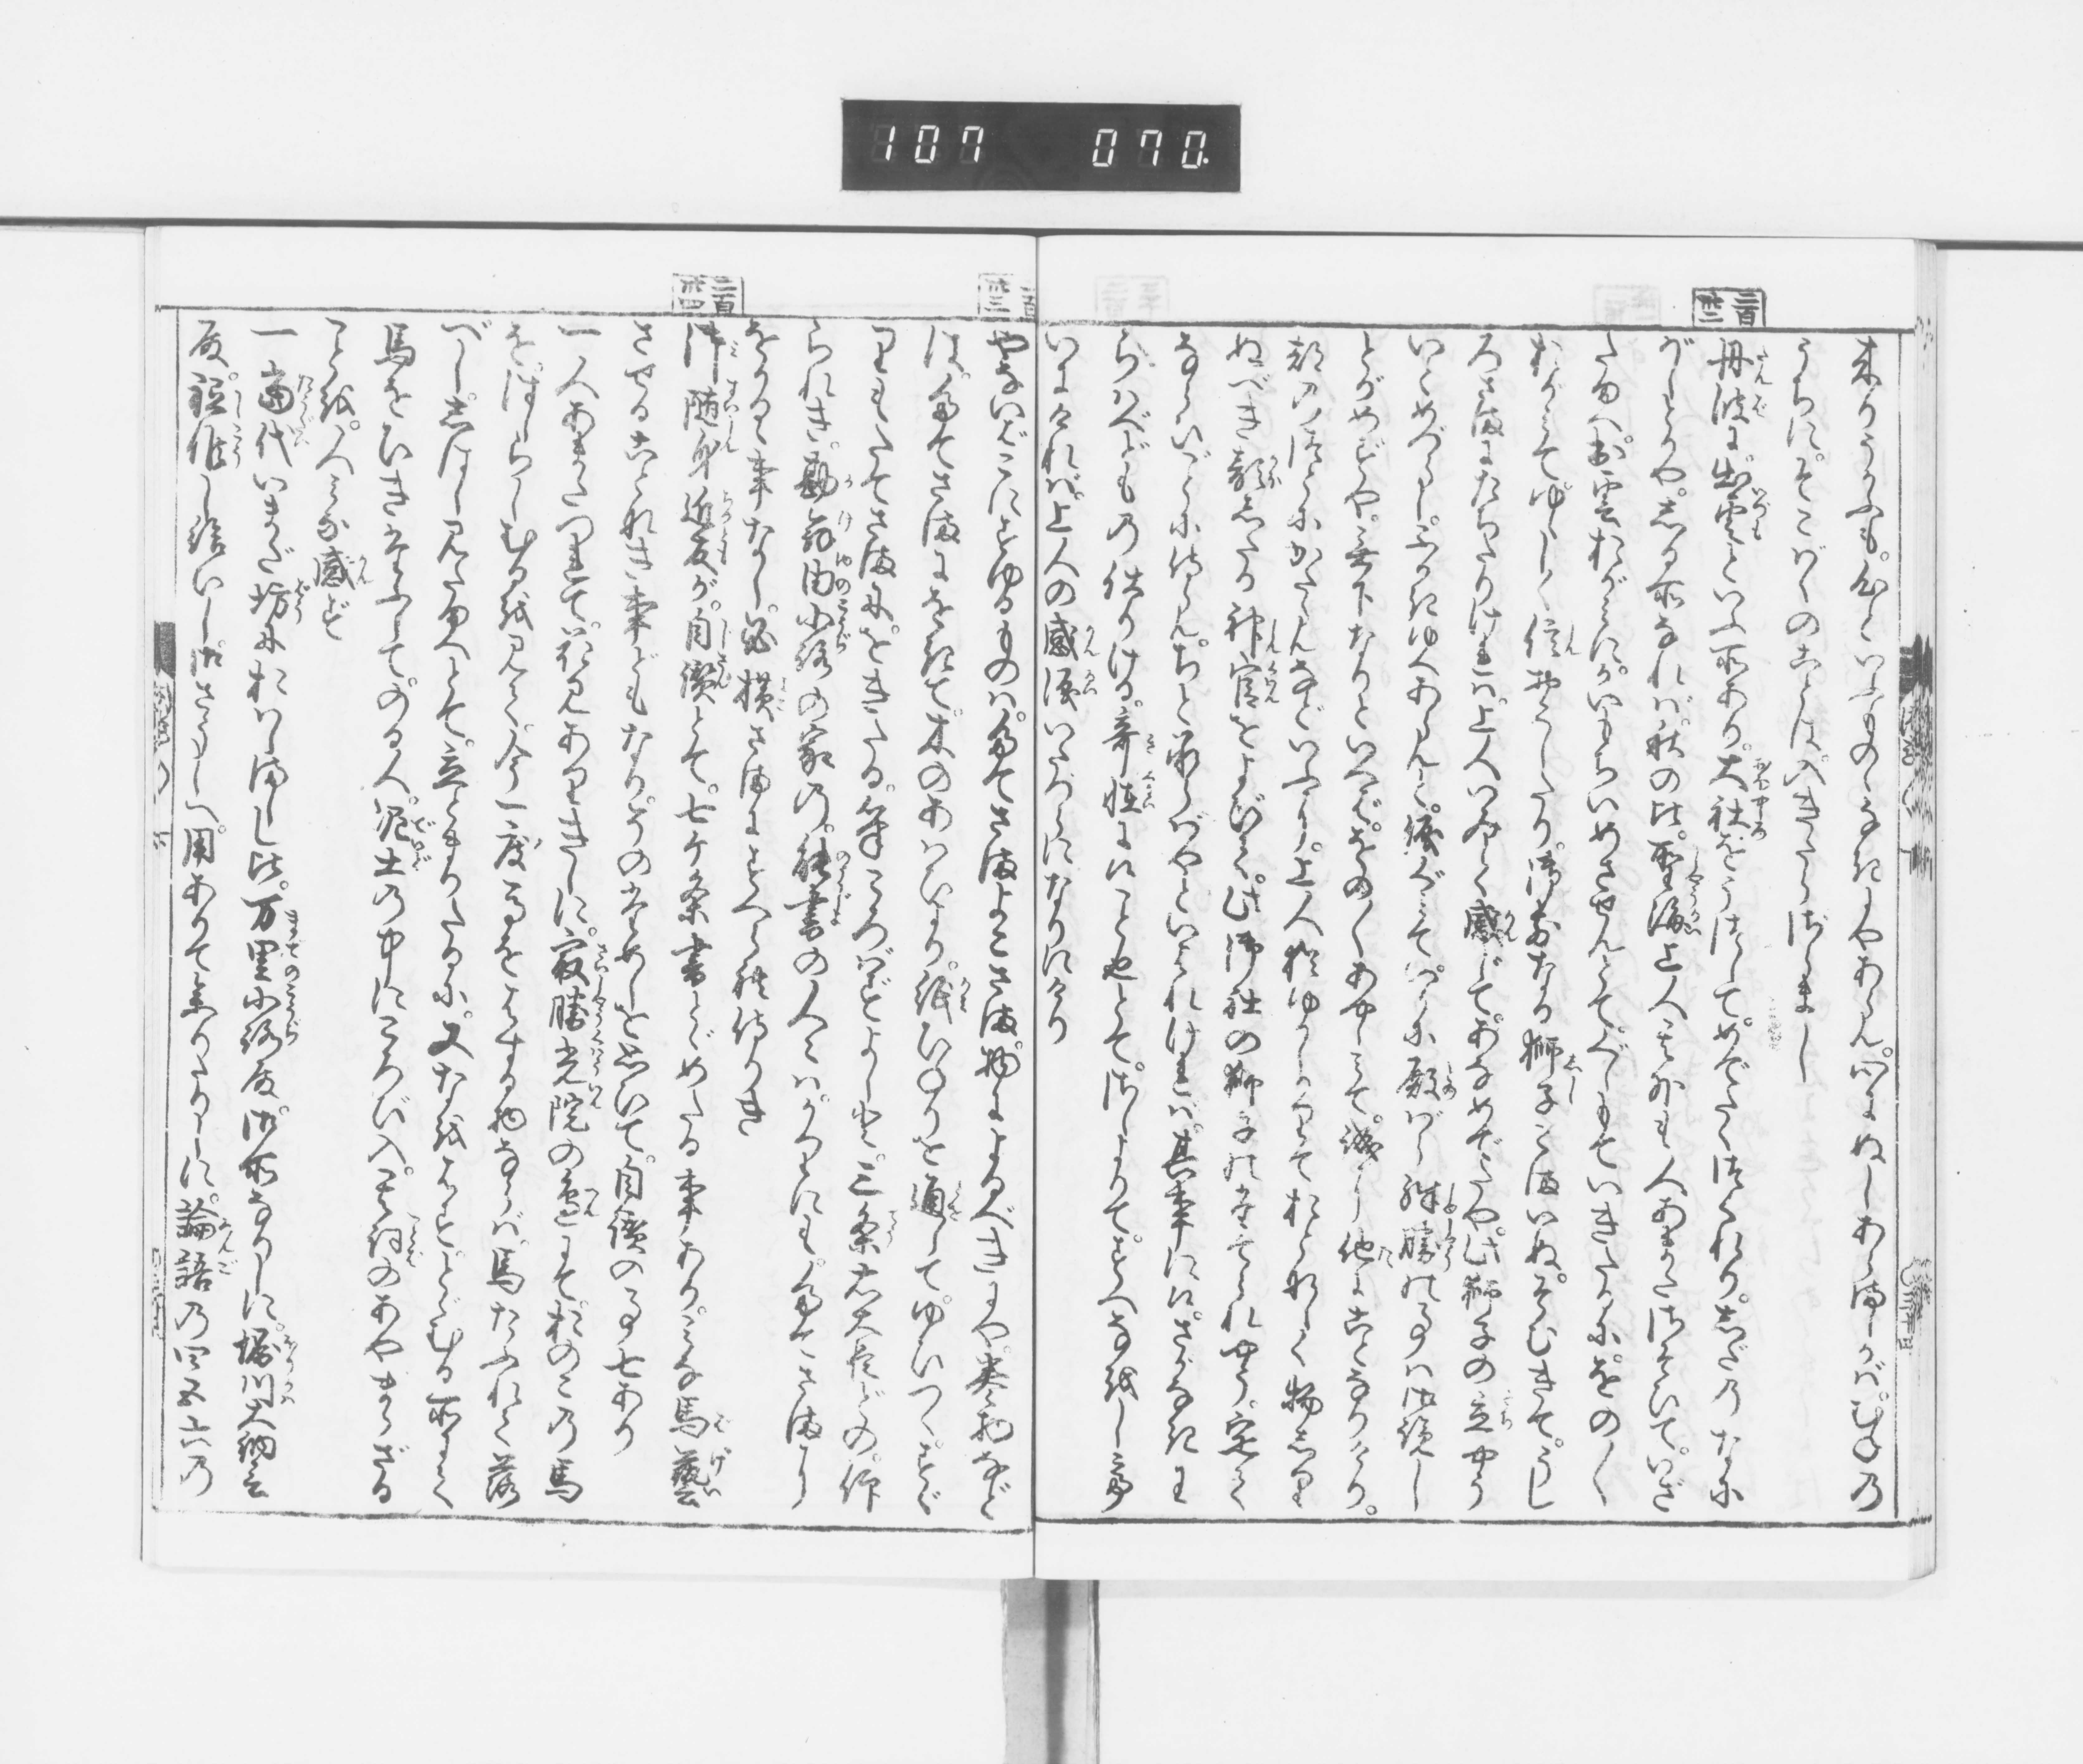 107 070.
二百卅二
来りうかふも。心といふもののなきにやあらん。心にぬしあらましかば。むねの
うちに。そこばくのことは。入きたらざらまし
丹波に。出雲といふ所あり。大社をうつして。めでたくつくれり。しだのなに
がしとかや。しる所なれば。秋の比。聖海上人其外も人あまたさそひて。いざ
たまへ。出雲おがみに。かいもちいめさせんとて。ぐしもていきたるに。をのく
おがみて。ゆゝしく信おこしたり。御前なる獅子こまいぬ。そむきて。うし
ろさまにたちたりければ。上人いみじく感じて。あなめでたや。此獅子の立やう
いとめづらし。ふかきゆへあらんと。涙ぐみて。いかに殿ばら殊勝の事は御覧し
とがめずや。無下なりといへば。をのくあやしみて。誠に他にことなりけり。
都のつとにかたらんなどいふに。上人猶ゆかしがりて。おとなしく物しり
ぬべき顔したる神官をよびて。此御社の獅子の立られやう。定て
ならひある事に侍らん。ちと承らばやといはれければ。其事に候。さがなきわ
らはべどもの仕りける。奇怪に候こと也とて。さしよりて。すへなをしてい
にければ。上人の感涙いたづらになりにけり
二百卅三
やないばこにすゆるものは。たてさまよこさま。物によるべきにや。巻物など
は。たてさまにをきて。木のあはひより。紙ひねりを通して。ゆひつく。すゞ
りもたてさまに。をきたる。筆ころばずよし。と。三条右大臣どの。仰
られき。勘解由小路の家の。能書の人々は。かりにも。たてさまに
をかるゝ事なし。必横さまにすへられ侍りき
二百卅四
御随身近友が。自讃とて。七ケ条書とゞめたる事あり。みな馬藝
させることなき事どもなり。そのためしを思ひて。自讃の事七あり
一人あまたつれて。花見ありきしに。最勝光院の邊にて。おのこの馬
を。はしらしむるを見て。今一度馬をはする物ならば。馬たふれて落
べし。しばし見たまへとて。立とまりたるに。又馬をはす。とゞむる所にて
馬をひきたふして。のる人。泥土の中にころび入。其詞のあやまらざる
ことを。人みな感ず
一當代いまだ坊におはしましし比。万里小路殿。御所なりしに。堀川大納言
殿。祗候し給ひし。御さうしへ。用ありて参りたりしに。論語の四五六の